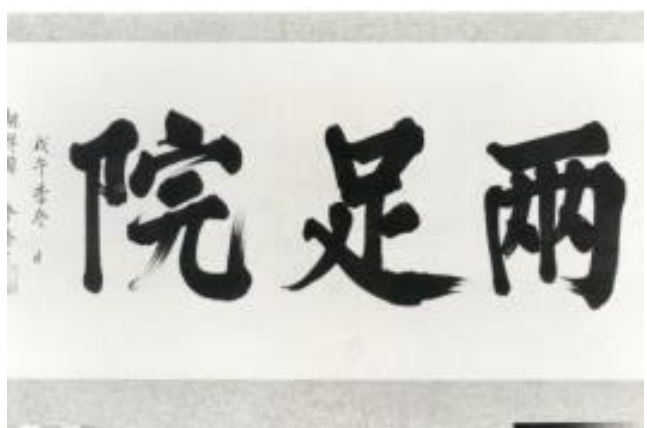 兩足院
戊午季冬日